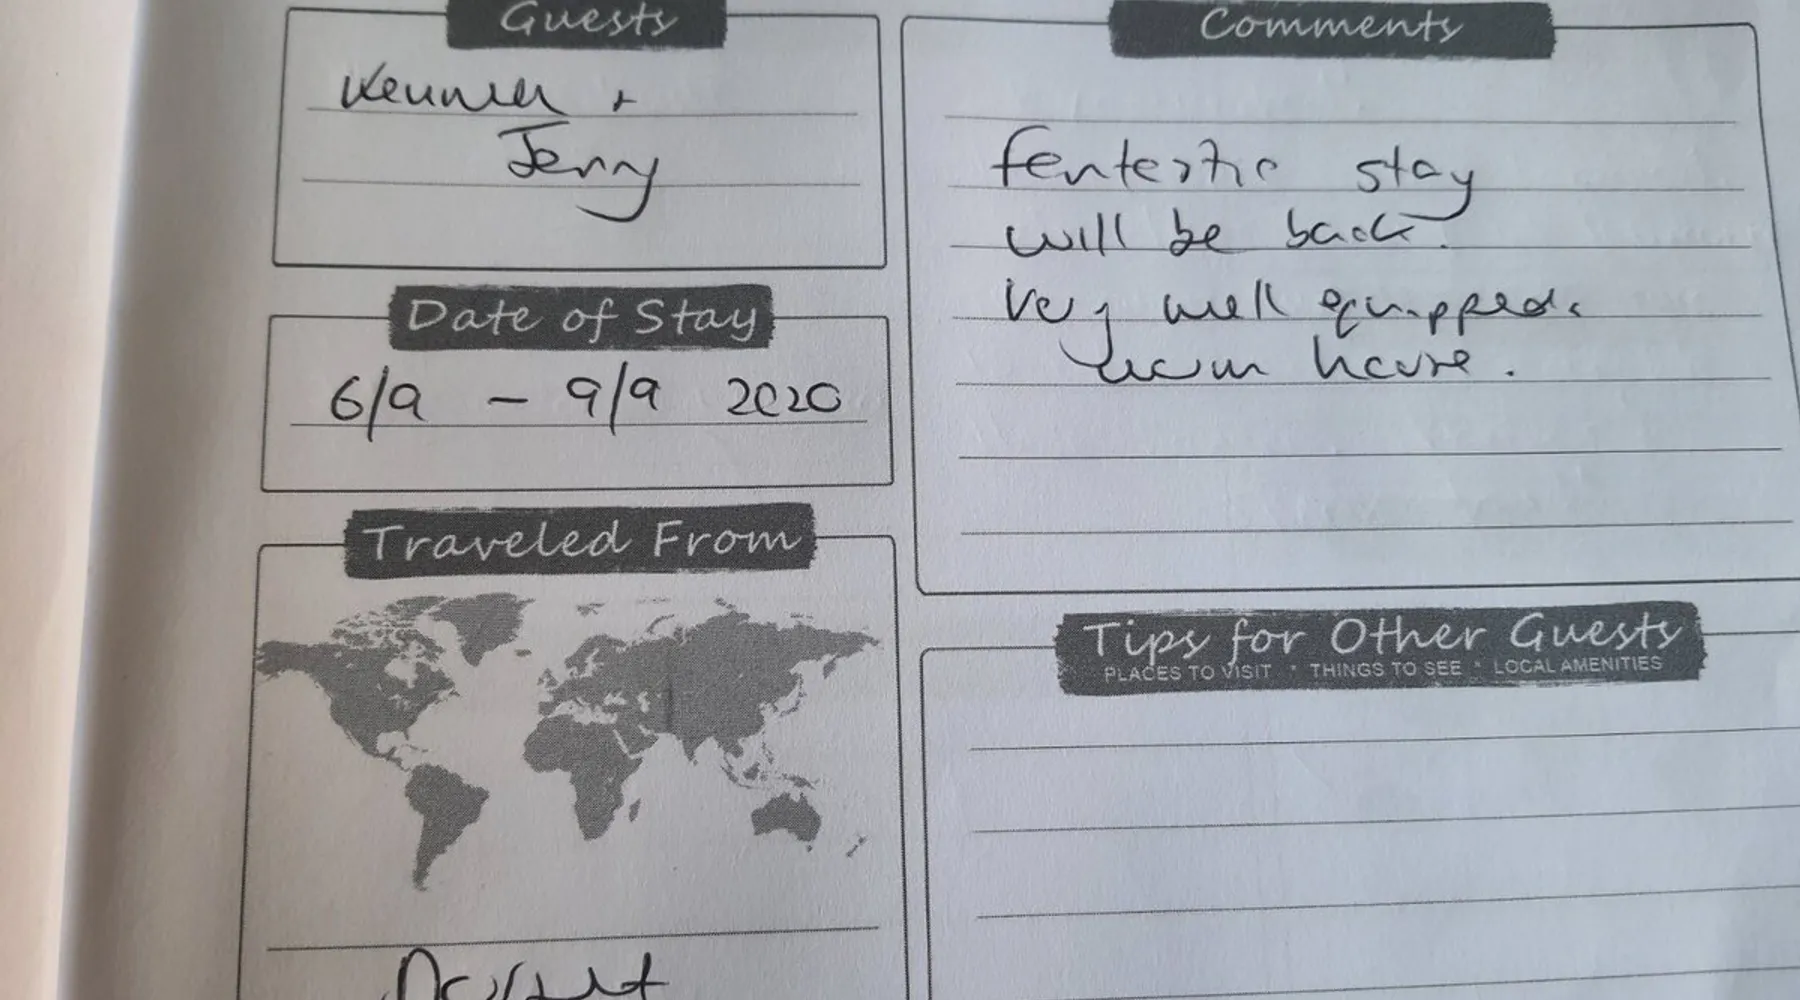 Guests
Kenneth +
Jenny
Date of Stay
6/9 - 9/9 2020
Traveled From
Dorset
Comments
fantastic stay
will be back.
Very well equipped.
house.
Tips for Other Guests
PLACES TO VISIT * THINGS TO SEE * LOCAL AMENITIES